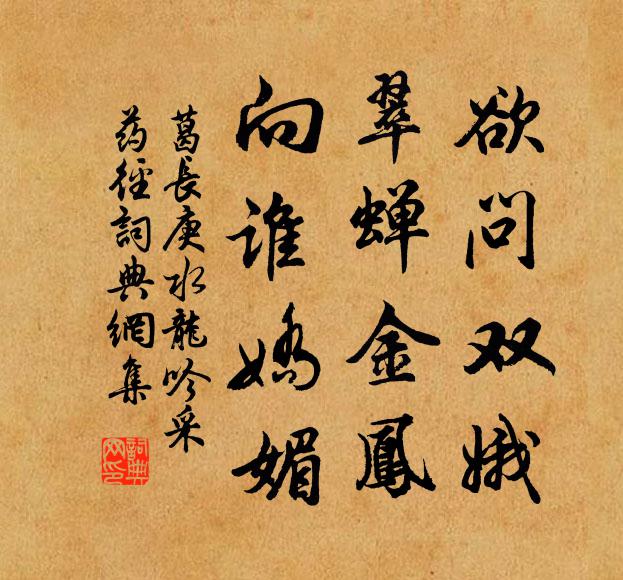 欲问双娥
翠蝉金鳳
向谁娇媚
葛長庚水龍吟采
药徑詞典網集
詞典网印